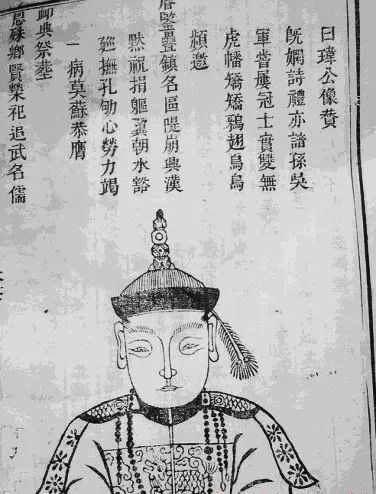 曰瑋公像贊
既嫻詩禮亦諳孫吳
軍當屢冠士實雙無
虎幡矯矯鶚翅烏烏
頻邀
鑒疊鎮名區隄崩興漢
默祝捐軀翼朝水豁
廵撫孔勛心勞力竭
一病莫蘇恭膺
卹典祭塟
恩殊鄉賢榮祀追武名儒